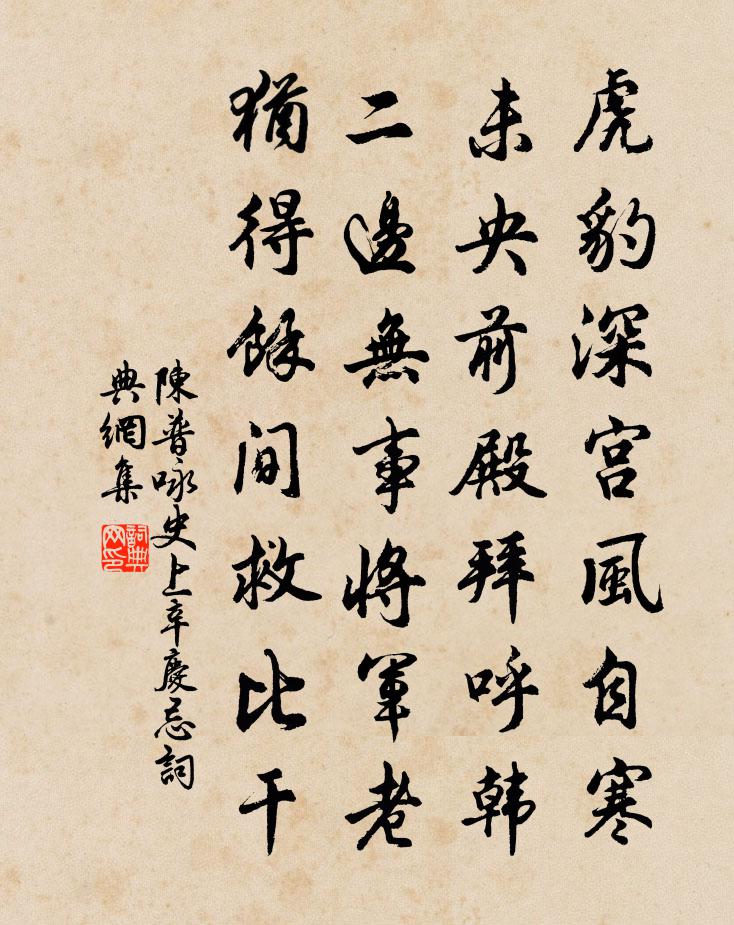 虎豹深宮風自寒
未央前殿拜呼韩
二邊無事將軍老
猶得餘间救比干
陳普咏史上辛慶忌詞
典網集
詞典网印